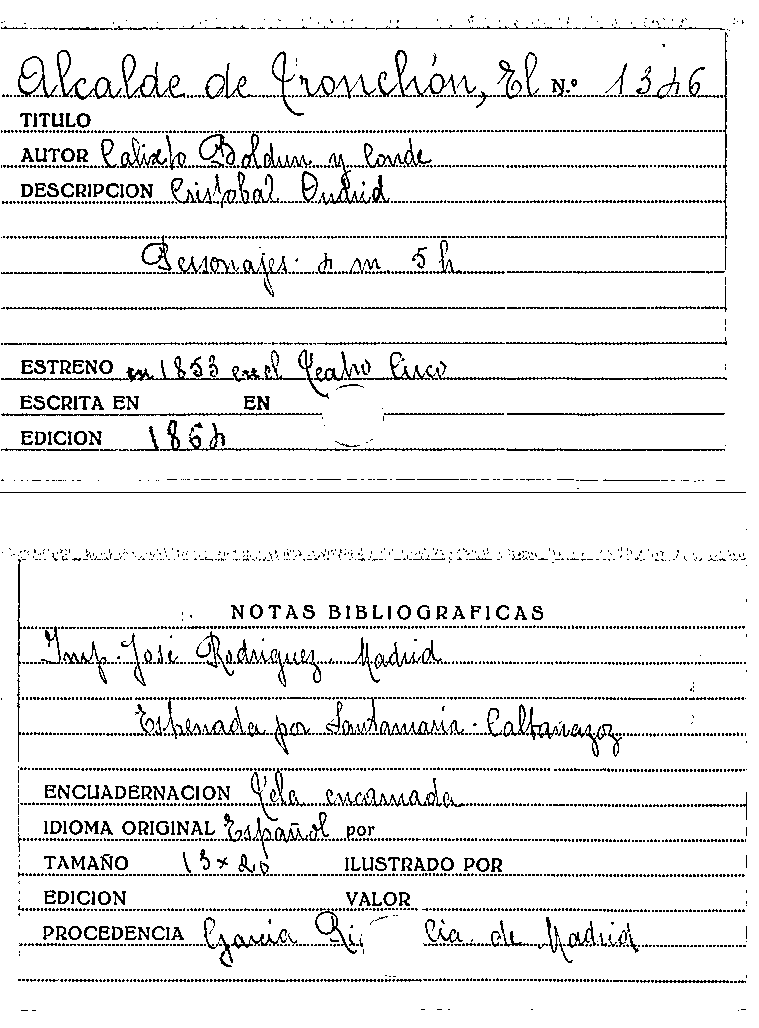 Alcalde de Tronchón, El N.º 1346
TITULO
AUTOR Calixto Boldun y Conde
DESCRIPCION Cristobal Oudrid
Personajes: 4 m. 5 h.
ESTRENO en 1853 en el Teatro Circo
ESCRITA EN EN
EDICION 1864
NOTAS BIBLIOGRAFICAS
Imp. José Rodriguez. Madrid
Estrenada por Santamaria - Caltañazoz
ENCUADERNACION Tela encarnada
IDIOMA ORIGINAL Español por
TAMAÑO 13 x 20 ILUSTRADO POR
EDICION VALOR
PROCEDENCIA Garcia Cia. de Madrid